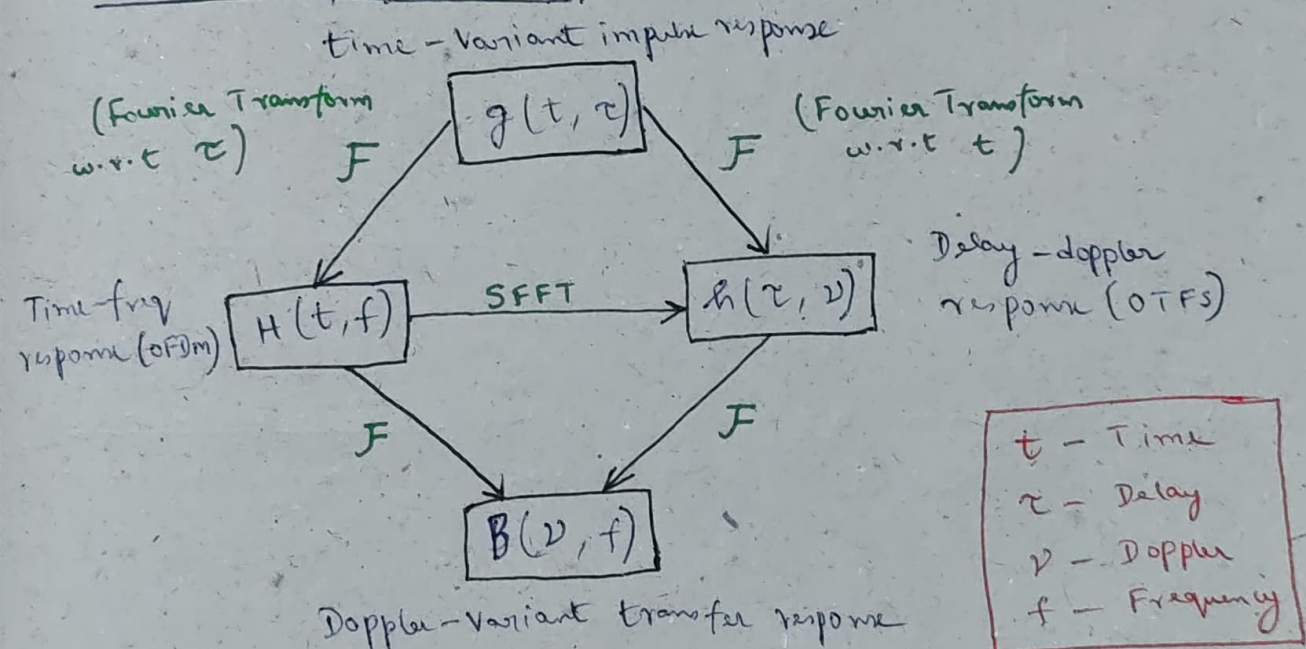 time-variant impulse response
(Fourier Transform
w.r.t τ)
F
g(t, τ)
F
(Fourier Transform
w.r.t t)
Time-freq
response (OFDM)
H(t, f)
SFFT
h(τ, ν)
Delay-doppler
response (OTFS)
F
F
B(ν, f)
Doppler-variant transfer response
t - Time
τ - Delay
ν - Doppler
f - Frequency